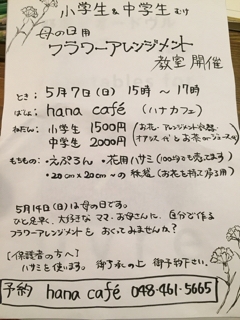 小学生&中学生むけ
母の日用
フラワーアレンジメント
教室 開催
とき: 5月7日(日) 15時〜17時
ばしょ: hana café (ハナカフェ)
ねだん: 小学生 1500円
中学生 2000円
(お花・アレンジメント
お茶orジュースつき)
もちもの: ・えぷろん ・花用ハサミ(100均でも売ってます)
・20cm×20cm〜の紙袋(お花を持って帰る用)
5月14日(日)は母の日です。
ひと足早く、大好きな ママ・お母さんに、自分で作る
フラワーアレンジメントを おくってみませんか?
[保護者の方へ]
ハサミを使います。御了承の上 御予約下さい。
予約 hana café 048-461-5665